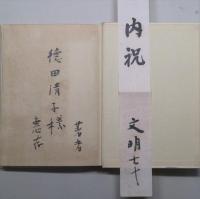 内祝
文明七十
徳田清子様
恵存
著者